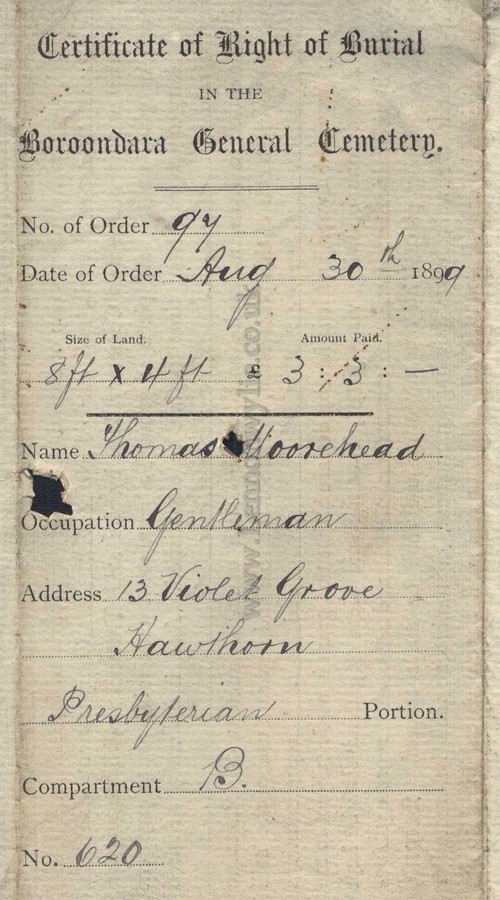 Certificate of Right of Burial
IN THE
Boroondara General Cemetery.
No. of Order 97
Date of Order Aug 30th 1899
Size of Land. Amount Paid.
8ft x 4 ft £ 3 : 3 : —
Name Thomas Moorehead
Occupation Gentleman
Address 13 Violet Grove
Hawthorn
Presbyterian Portion.
Compartment B.
No. 620